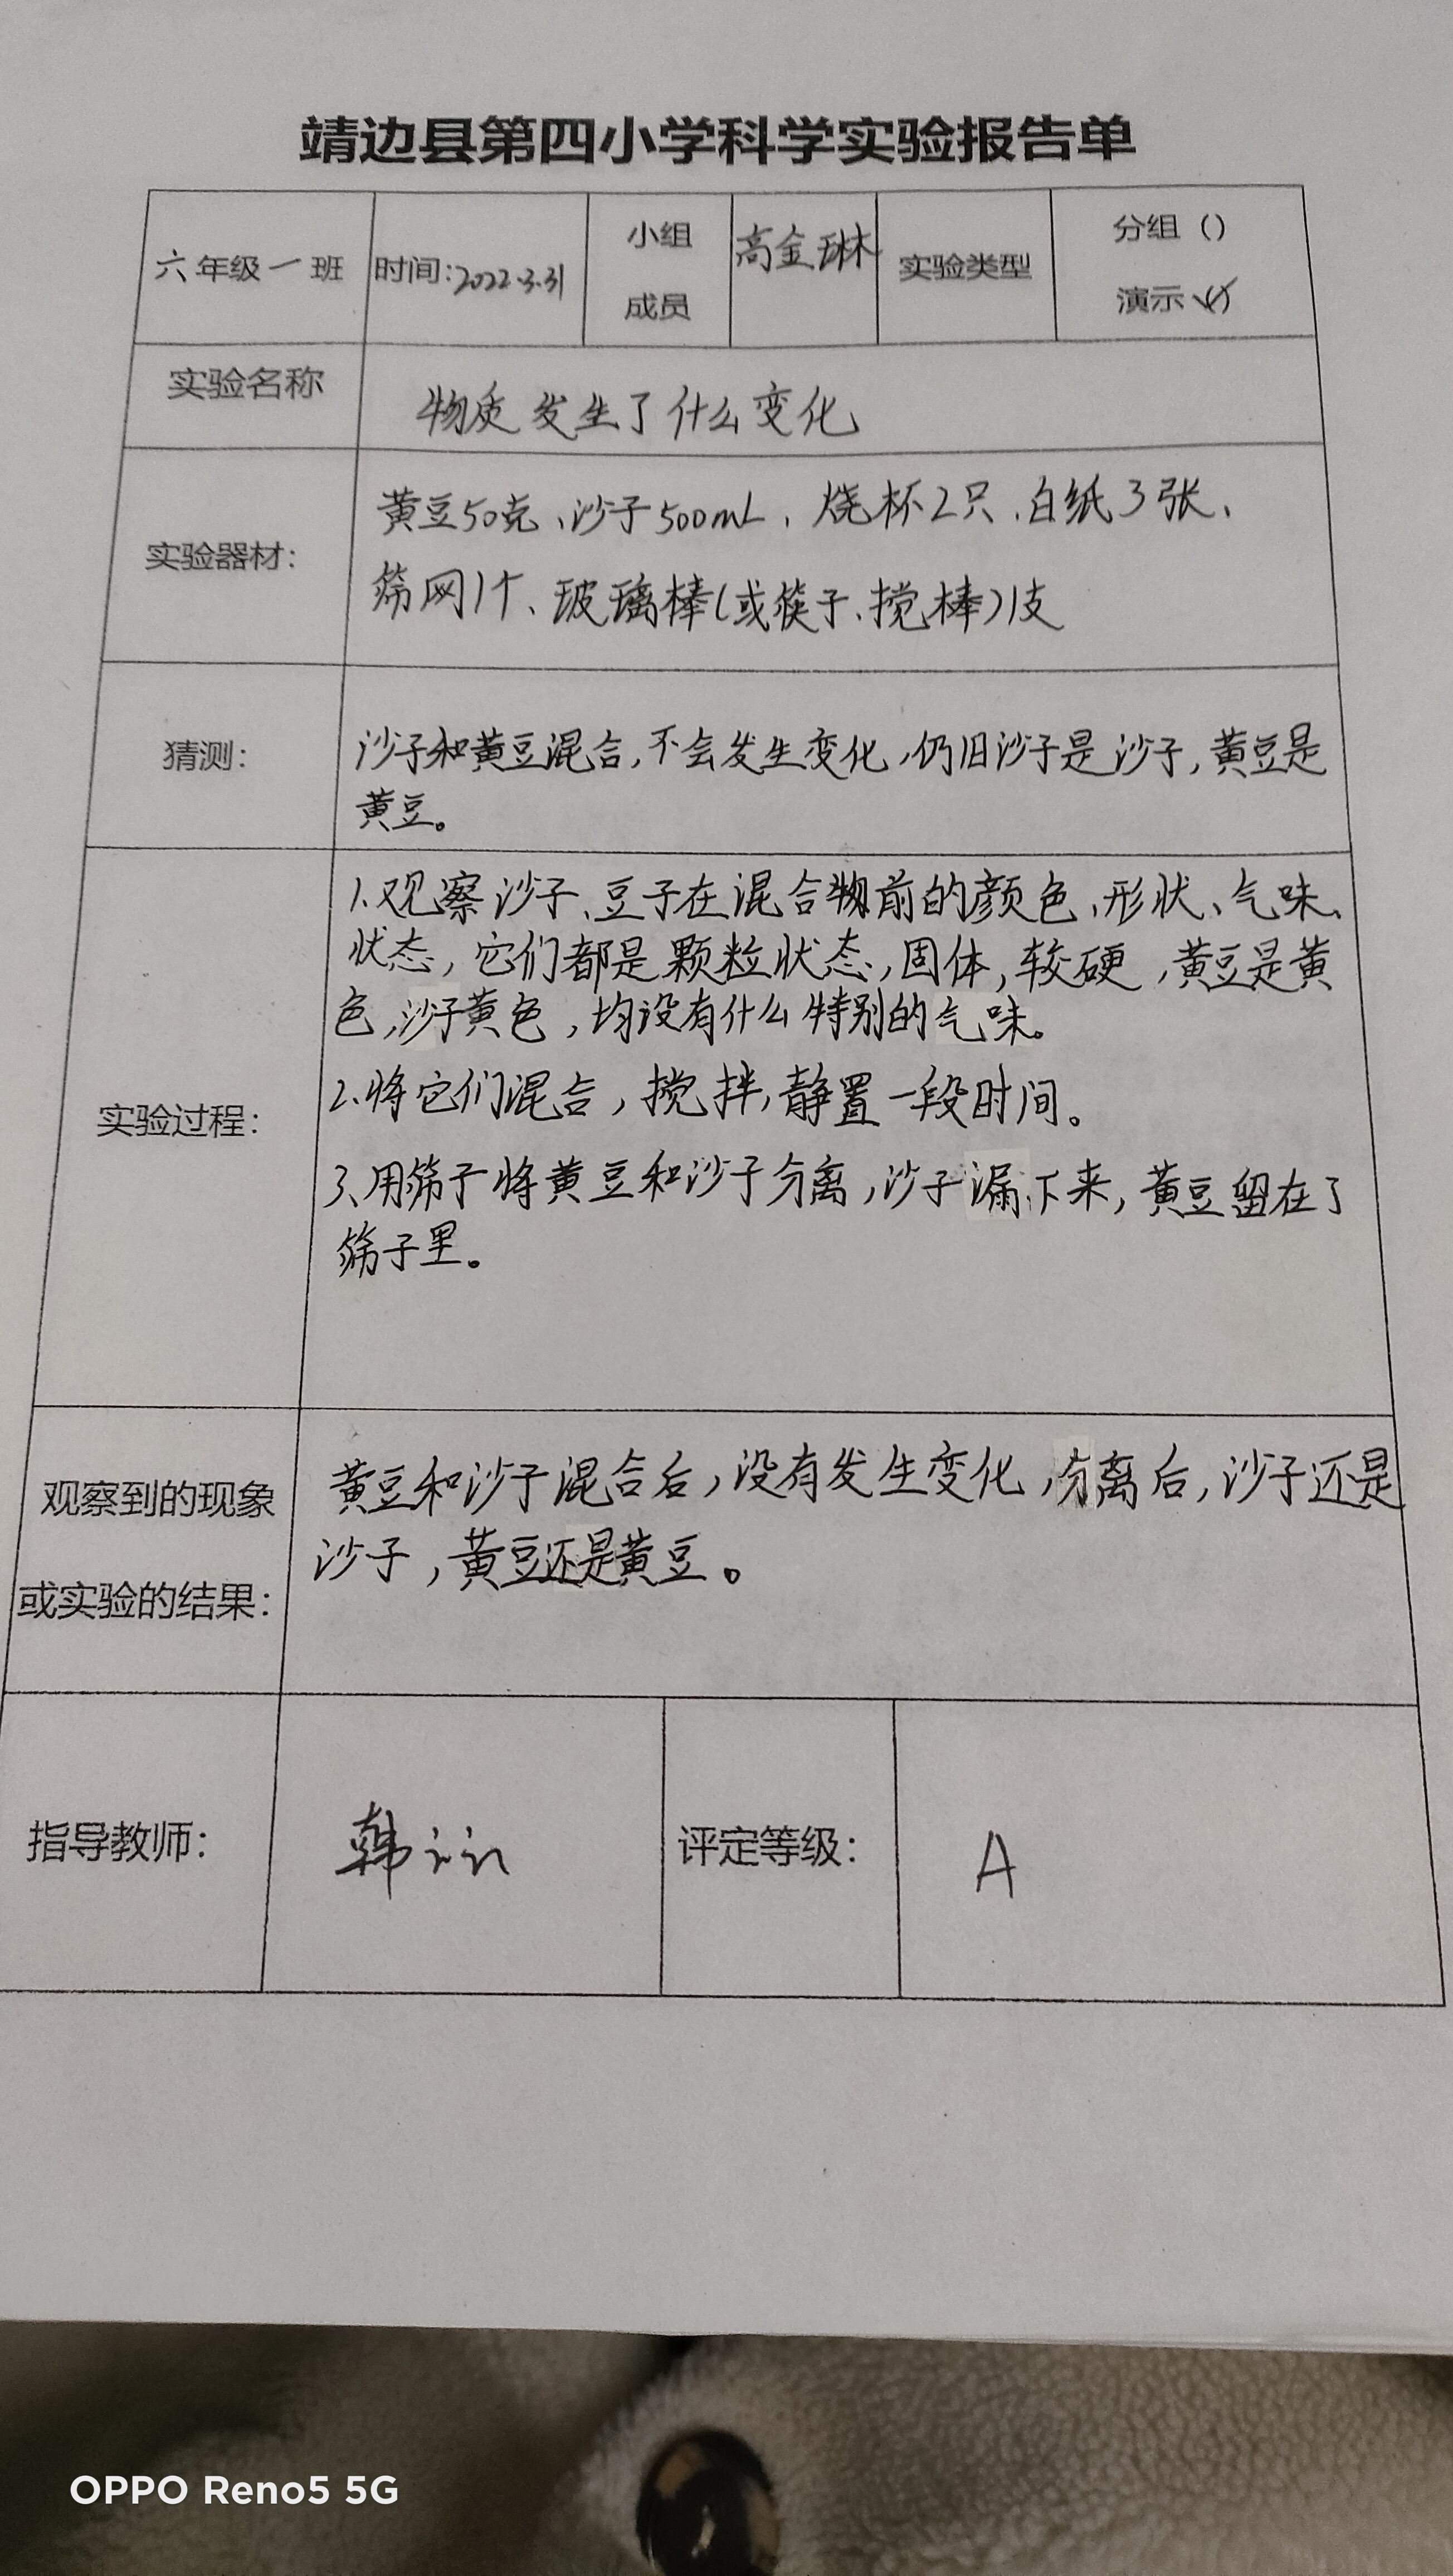 靖边县第四小学科学实验报告单
六年级一班 时间:2022.3.31 小组成员 高金琳 实验类型 分组（） 演示（√）
实验名称 物质发生了什么变化
实验器材： 黄豆50克、沙子500mL、烧杯2只、白纸3张、
筛网1个、玻璃棒(或筷子、搅棒)1支
猜测： 沙子和黄豆混合,不会发生变化,仍旧沙子是沙子,黄豆是
黄豆。
实验过程：
1.观察沙子、豆子在混合物前的颜色、形状、气味、
状态,它们都是颗粒状态,固体,较硬,黄豆是黄
色,沙子黄色,均没有什么特别的气味。
2.将它们混合,搅拌,静置一段时间。
3、用筛子将黄豆和沙子分离,沙子漏下来,黄豆留在了
筛子里。
观察到的现象
或实验的结果：
黄豆和沙子混合后,没有发生变化,分离后,沙子还是
沙子,黄豆还是黄豆。
指导教师： 韩 评定等级： A
OPPO Reno5 5G